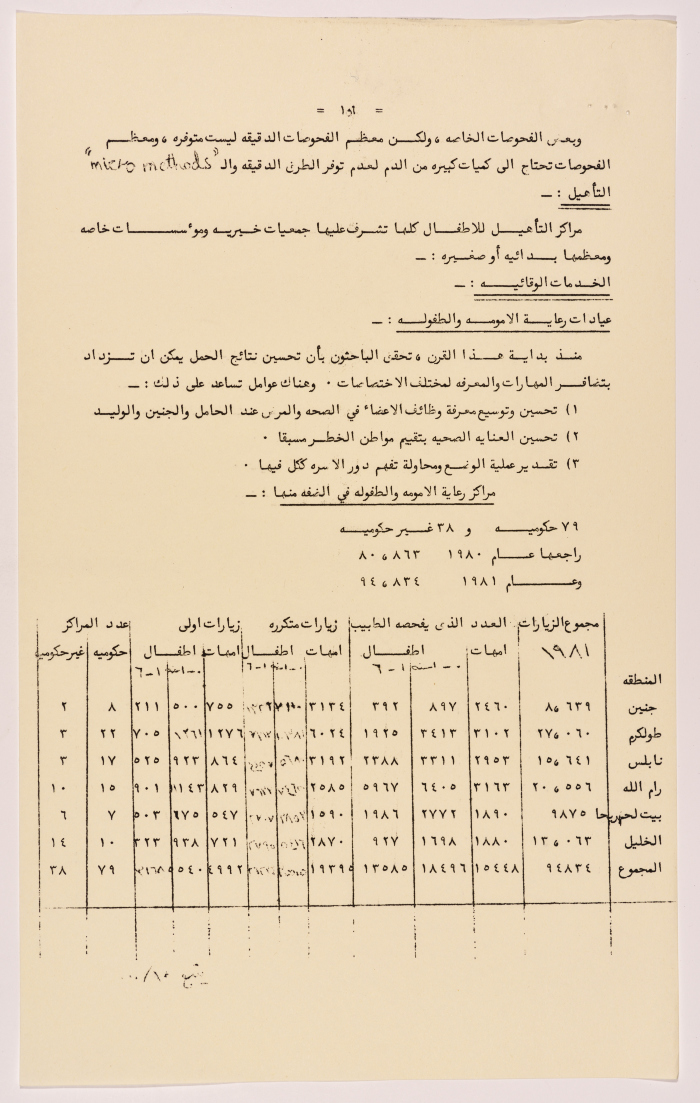 = ١٥ =
وبعض الفحوصات الخاصه ، ولكن معظم الفحوصات الدقيقه ليست متوفره ، ومعظم
الفحوصات تحتاج الى كميات كبيره من الدم لعدم توفر الطرق الدقيقه والـ "micro methods"
التأهيل : ــ
مراكز التأهيل للاطفال كلها تشرف عليها جمعيات خيريه ومؤسسات خاصه
ومعظمها بدائيه أو صغيره : ــ
الخدمات الوقائيه : ــ
عيادات رعاية الامومه والطفوله : ــ
منذ بداية هذا القرن ، تحقق الباحثون بأن تحسين نتائج الحمل يمكن ان تزداد
بتضافر المهارات والمعرفه لمختلف الاختصاصات ٠ وهناك عوامل تساعد على ذلك : ــ
١) تحسين وتوسيع معرفة وظائف الاعضاء في الصحه والمرض عند الحامل والجنين والوليد
٢) تحسين العنايه الصحيه بتقييم مواطن الخطر مسبقا ٠
٣) تقدير عملية الوضع ومحاولة تفهم دور الاسره ككل فيها ٠
مراكز رعاية الامومه والطفوله في الضفه منها : ــ
٧٩ حكوميه و ٣٨ غير حكوميه
راجعها عام ١٩٨٠ ٨٠،٨٦٣
وعام ١٩٨١ ٩٤،٨٣٤
مجموع الزيارات العدد الذى يفحصه الطبيب زيارات متكرره زيارات اولى عدد المراكز
١٩٨١ امهات اطفال امهات اطفال امهات اطفال حكوميه غير حكوميه
٠ــ اسنه ١ــ٦ ٠ــ اسنه ١ــ٦ ٠ــ اسنه ١ــ٦
المنطقه
جنين ٨،٦٣٩ ٢٤٦٠ ٨٩٧ ٣٩٢ ٣١٣٤ ٧٥٥ ٥٠٠ ٢١١ ٨ ٢
طولكرم ٢٧،٠٦٠ ٣١٠٢ ٣٤١٣ ١٩٢٥ ٦٠٢٤ ١٢٧٦ ٧٠٥ ٢٢ ٣
نابلس ١٥،٦٤١ ٢٩٥٣ ٣٣١١ ٢٣٨٨ ٣١٩٢ ٨٦٤ ٩٢٣ ٥٢٥ ١٧ ٣
رام الله ٢٠،٥٥٦ ٣١٦٣ ٦٤٠٥ ٥٩٦٧ ٢٥٨٥ ٨٢٩ ٩٠١ ١٥ ١٠
بيت لحم ٩٨٧٥ ١٨٩٠ ٢٧٧٢ ١٩٨٦ ١٥٩٠ ٥٤٧ ٦٧٥ ٥٠٣ ٧ ٦
الخليل ١٣،٠٦٣ ١٨٨٠ ١٦٩٨ ٩٢٧ ٢٨٧٠ ٧٢١ ٩٣٨ ٣٢٣ ١٠ ١٤
المجموع ٩٤٨٣٤ ١٥٤٤٨ ١٨٤٩٦ ١٣٥٨٥ ١٩٣٩٥ ٤٩٩٢ ٧٩ ٣٨
يتبع